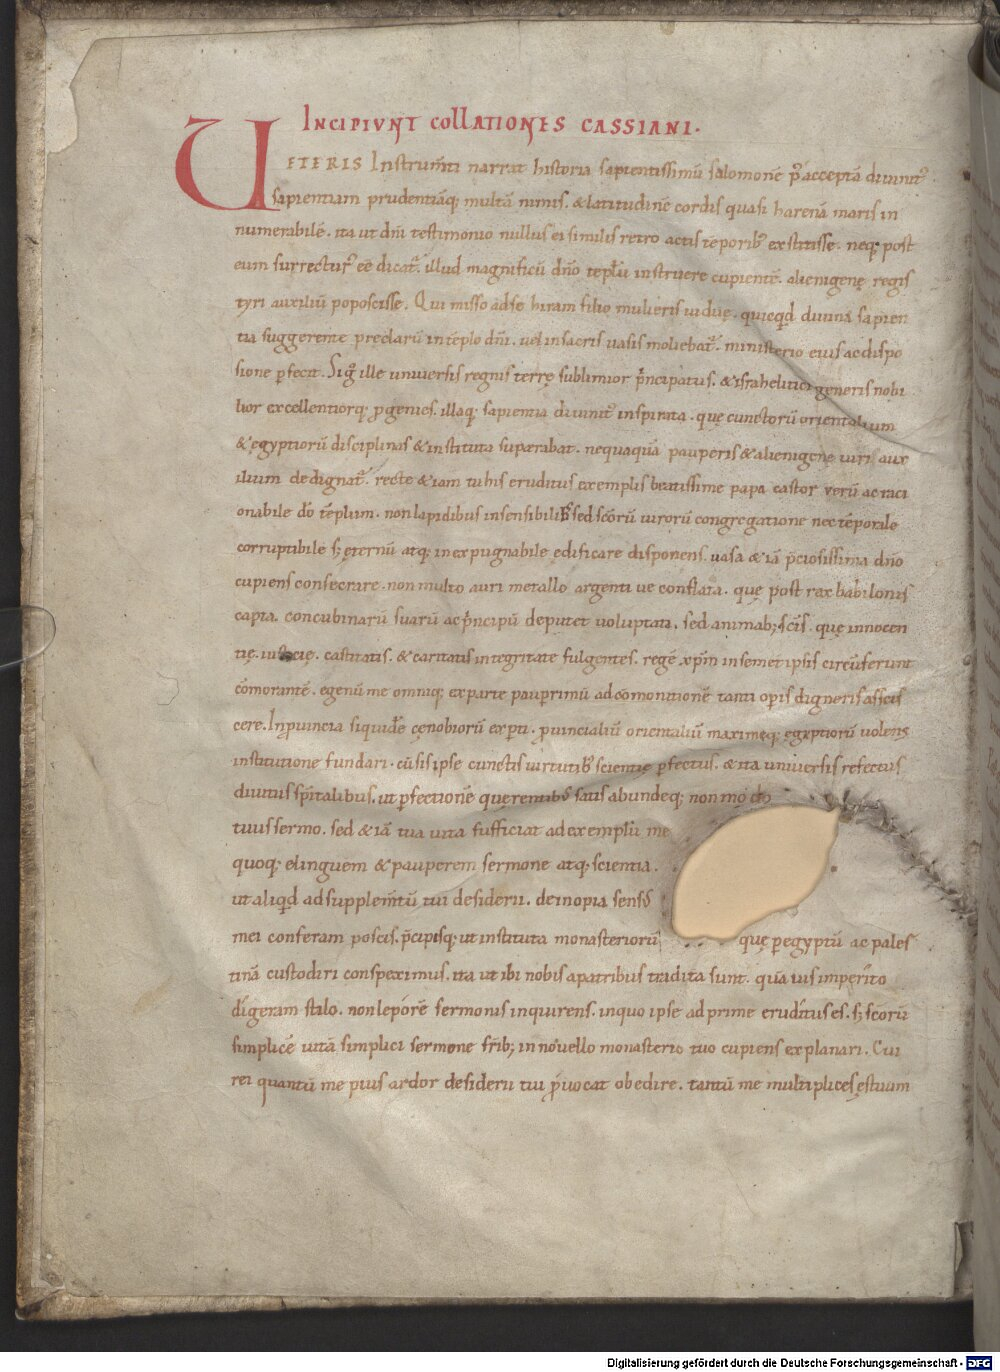 INCIPIVNT COLLATIONES CASSIANI.
UETERIS Instrum̄ti narrat historia sapientissimū salomonē p̄ acceptā diuinit᷒
sapientiam prudentiāq; multā nimis. & latitudinē cordis quasi harenā maris in
numerabilē. ita ut dn̄i testimonio nullus ei similis retro actis tēporib᷒ exstitisse. neq; post
eum surrectur᷒ eē dicat᷒. illud magnificū dn̄o tēplū instruere cupientē. alienigenę regis
tyri auxiliū poposcisse. Qui misso ad se hiram filio mulieris uiduę. quicq̄d diuina sapien
tia suggerente preclarū in tēplo dn̄i. uel in sacris uasis moliebat᷒. ministerio eius ac dispo
sione ꝑfecit. Sig᷒ ille uniuersis regnis terrę sublimior p̄ncipatus. & israhelitici generis nobi
lior excellentiorq; ꝓgenies. illaq; sapientia diuinit᷒ inspirata. quę cunctorū orientalium
& ęgyptiorū disciplinas & instituta superabat. nequaquā pauperis & alienigenę uiri aux
ilium dedignat᷒. recte & iam tu his eruditus exemplis beatissime papa castor uerū ac raci
onabile dō tēplum. non lapidibus insensibilib᷒ sed sc̄orū uirorū congregatione nec tēporale
corruptibile s; ęternū atq; inexpugnabile ędificare disponens. uasa & iā p̄ciosissima dn̄o
cupiens consecrare. non multo auri metallo argenti ue conflata. quę post rex babilonis
capta. concubinarū suarū ac p̄ncipū deputet uoluptati. sed animab; sc̄is. quę innocen
tię. iusticię. castitatis. & caritatis integritate fulgentes. regē xp̄m in semet ipsis circūferunt
cōmorantē. egenū me omniq; ex parte pauꝑrimū ad cōmonitionē tanti oꝑis digneris ascis
cere. In ꝓuincia siquidē cęnobiorū exꝑti. ꝓuincialiū orientaliū maximęq; ęgyptiorū uolens
institutione fundari. cū sis ipse cunctis uirtutib᷒ scientię ꝑfectus. & ita uniuersis refectus
diuitiis sp̄italibus. ut ꝑfectionē quęrentib᷒ satis abundeq; non modo
tuus sermo. sed & iā tua uita sufficiat ad exemplū me
quoq; elinguem & pauperem sermone atq; scientia.
ut aliq̄d ad supplem̄tū tui desiderii. de inopia sens᷒
mei conferam poscis. p̄cipisq; ut instituta monasteriorū quę per egyptū ac pales
tinā custodiri conspeximus. ita ut ibi nobis a patribus tradita sunt. quāuis imperito
digeram stilo. non leporē sermonis inquirens. in quo ipse ad prime eruditus es. s; sc̄orū
simplicē uitā simplici sermone fr̄ib; in nouello monasterio tuo cupiens explanari. Cui
rei quantū me pius ardor desiderii tui ꝓuocat obedire. tantū me multiplices ęstuum
Digitalisierung gefördert durch die Deutsche Forschungsgemeinschaft - DFG